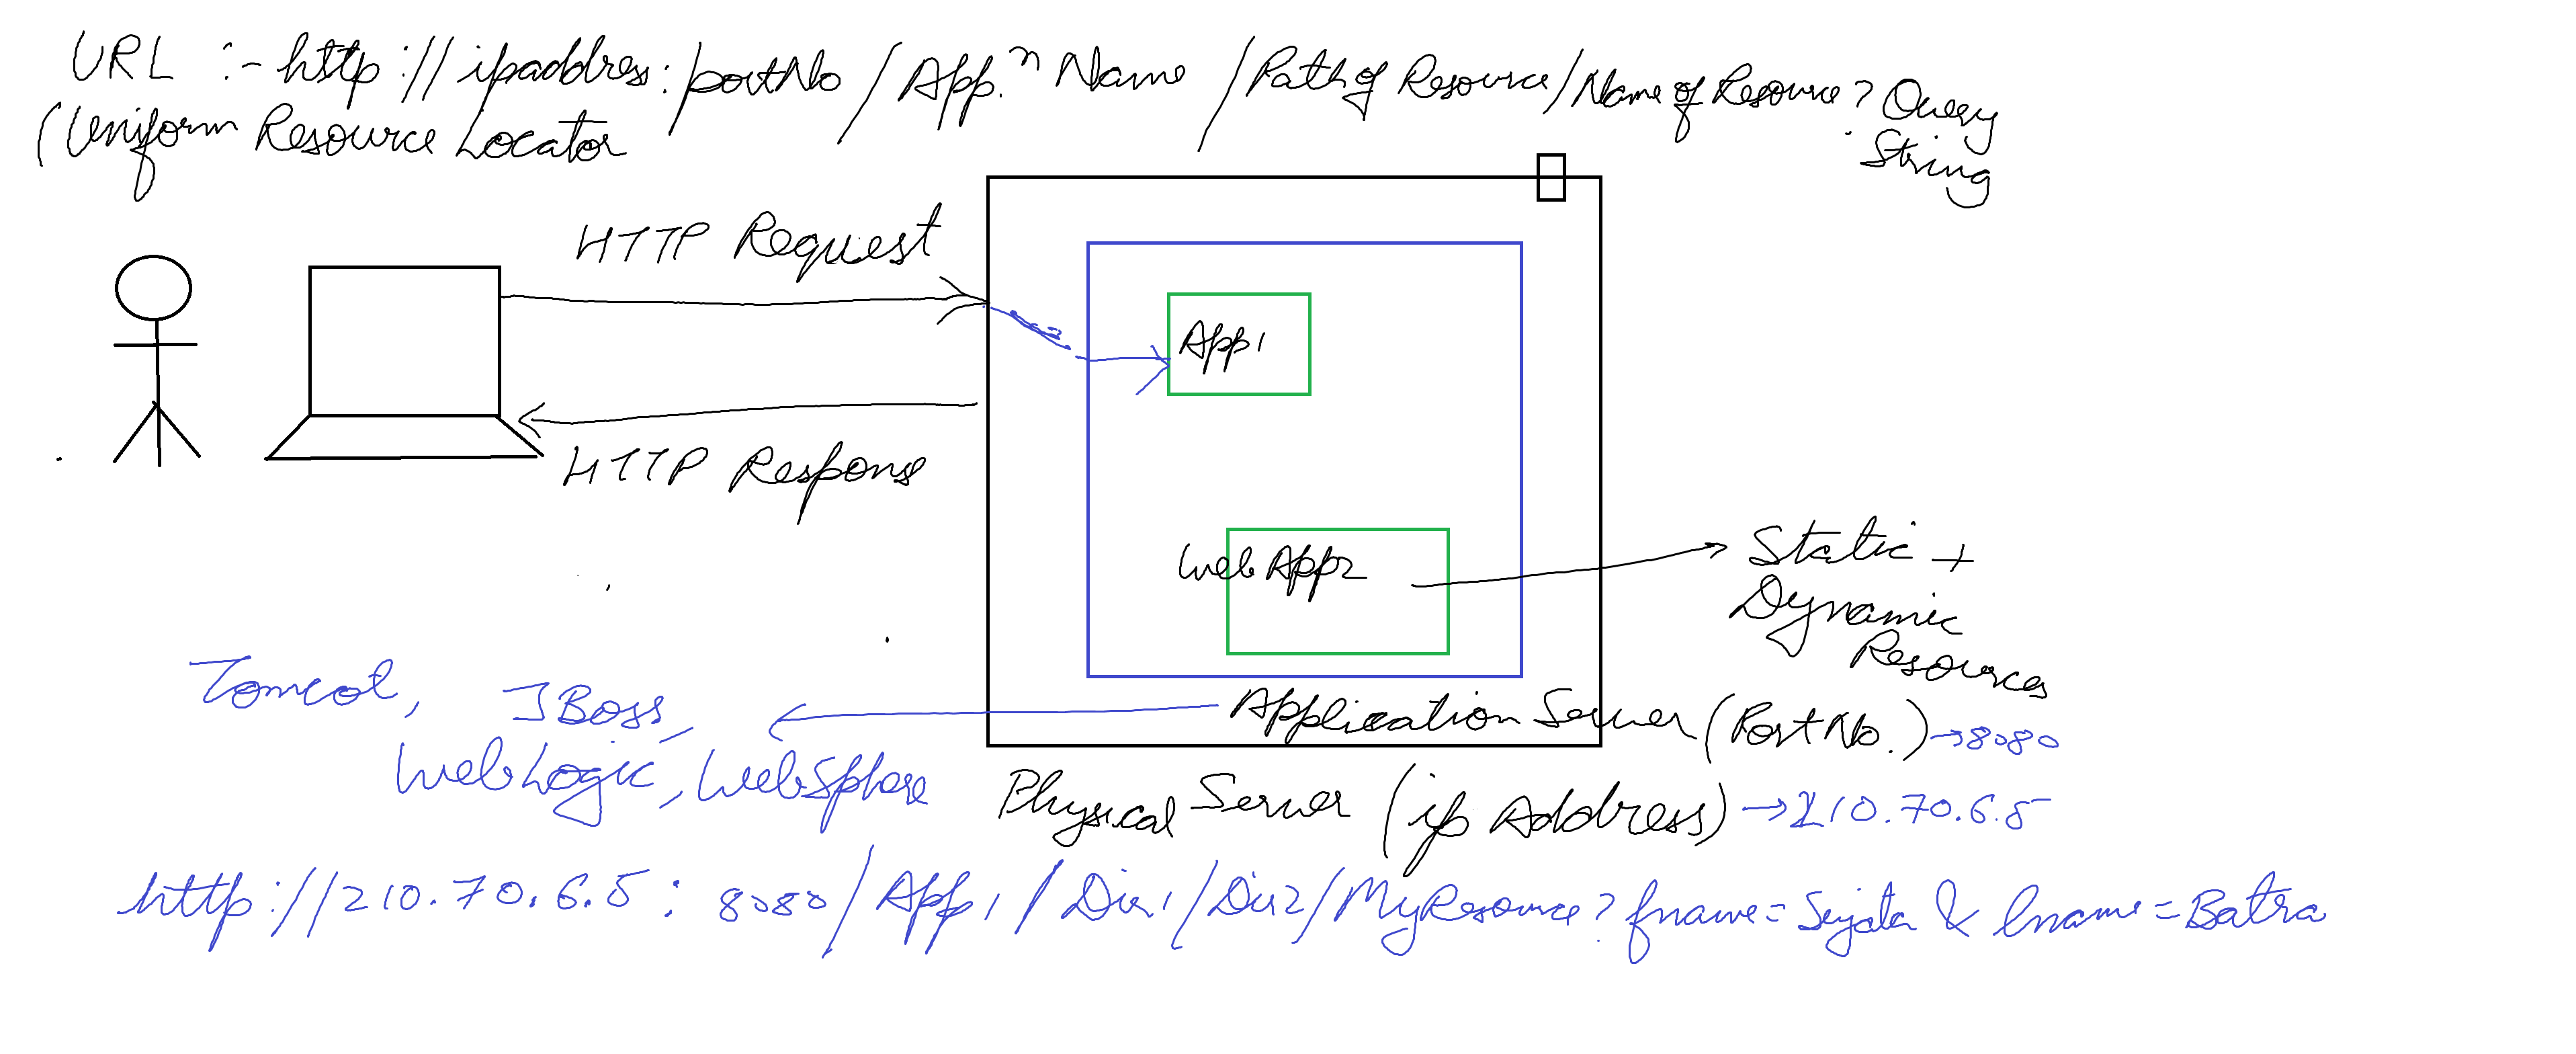 URL :- http://ipaddress:portNo/App.n Name/Path of Resource/Name of Resource? Query String
(Uniform Resource Locator
HTTP Request
App1
HTTP Response
Web App2
Static +
Dynamic
Resources
Tomcat, JBoss,
WebLogic, WebSphere
Application Server (Port No.) → 8080
Physical Server (ip Address) → 210.70.6.5
http://210.70.6.5:8080/App1/Dir1/Dir2/MyResource?fname=Sujata & lname=Batra